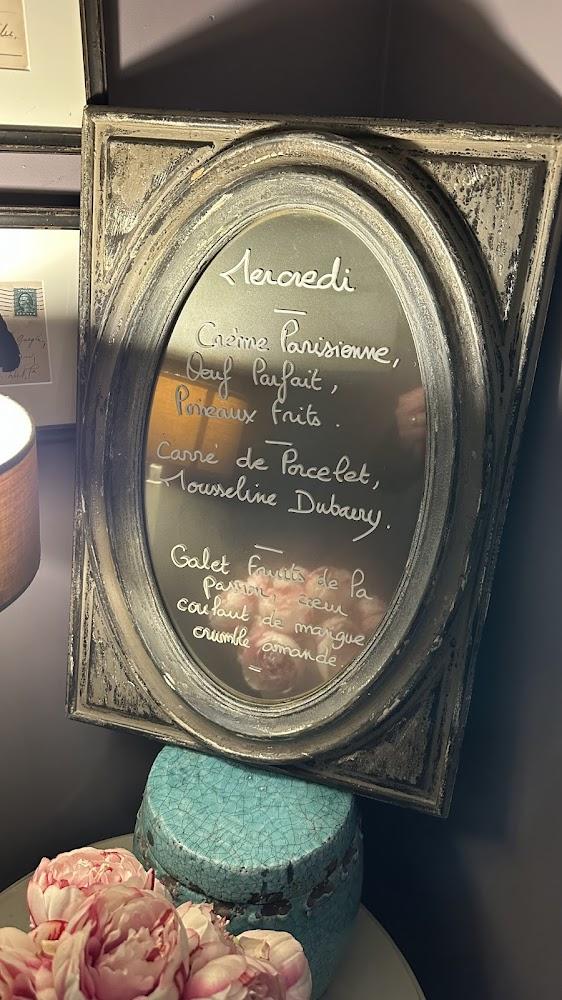 Mercredi
Crème Parisienne,
Oeuf Parfait,
Poireaux Frits.
Carré de Porcelet,
Mousseline Dubarry.
Galet Fruits de la
passion, cœur
coulant de mangue
crumble amande.